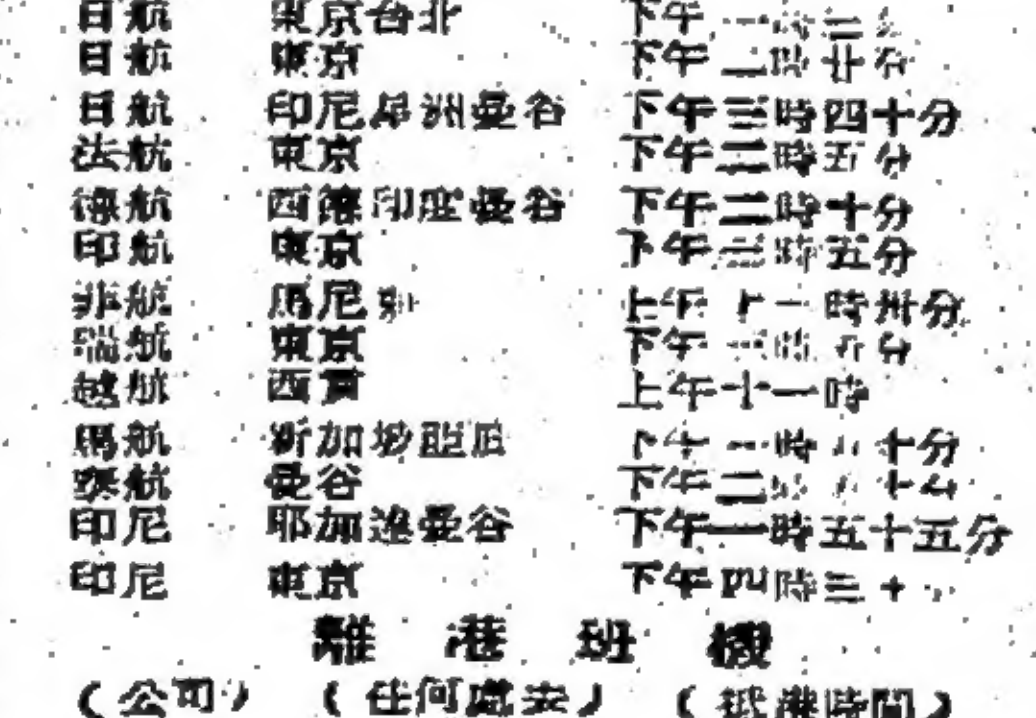 日航 東京台北 下午一時
日航 東京 下午二時廿分
日航 印尼星洲曼谷 下午三時四十分
法航 東京 下午二時五分
德航 西德印度曼谷 下午二時十分
印航 東京 下午三時五分
菲航 馬尼剌 上午十一時卅分
瑞航 東京 下午時五分
越航 西貢 上午十一時
馬航 新加坡 下午一時十分
泰航 曼谷 下午二時十分
印尼 耶加達曼谷 下午一時五十五分
印尼 東京 下午四時三十
離港班機
(公司) (任何處去) (抵港時間)